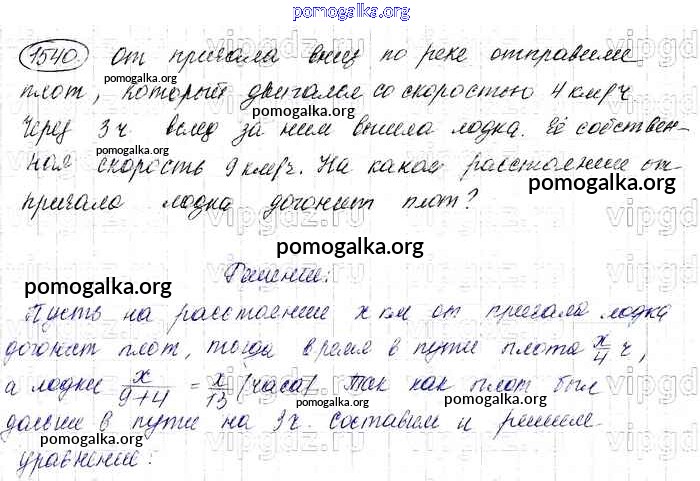 pomogalka.org
1540. От причала вниз по реке отправили
pomogalka.org
плот, который двигался со скоростью 4 км/ч
pomogalka.org
Через 3 ч вслед за ним вышла лодка. Её собствен-
pomogalka.org
ная скорость 9 км/ч. На каком расстоянии от
pomogalka.org
причала лодка догонит плот?
vipgdz.ru
pomogalka.org
Решение:
pomogalka.org
Пусть на расстоянии x км от причала лодка
догонит плот, тогда время в пути плота x/4 ч,
а лодки x/(9+4) = x/13 (часа). Так как плот был
pomogalka.org
pomogalka.org
дольше в пути на 3ч. составим и решим
pomogalka.org
уравнение: